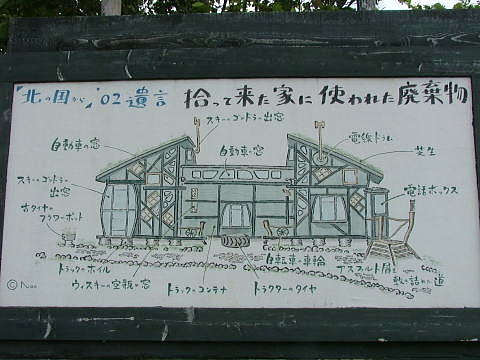 「北の国から」'02 遺言 拾って来た家に使われた廃棄物
スキーゴンドラー出窓
自動車の窓
自動車の窓
電線ドラム
芝生
スキーゴンドラー
出窓
電話ボックス
古タイヤの
フラワーポット
自転車の車輪
アスファルト屑を
敷き詰めた道
トラックのホイル
ウィスキーの空瓶の窓
トラックのコンテナ
トラクターのタイヤ